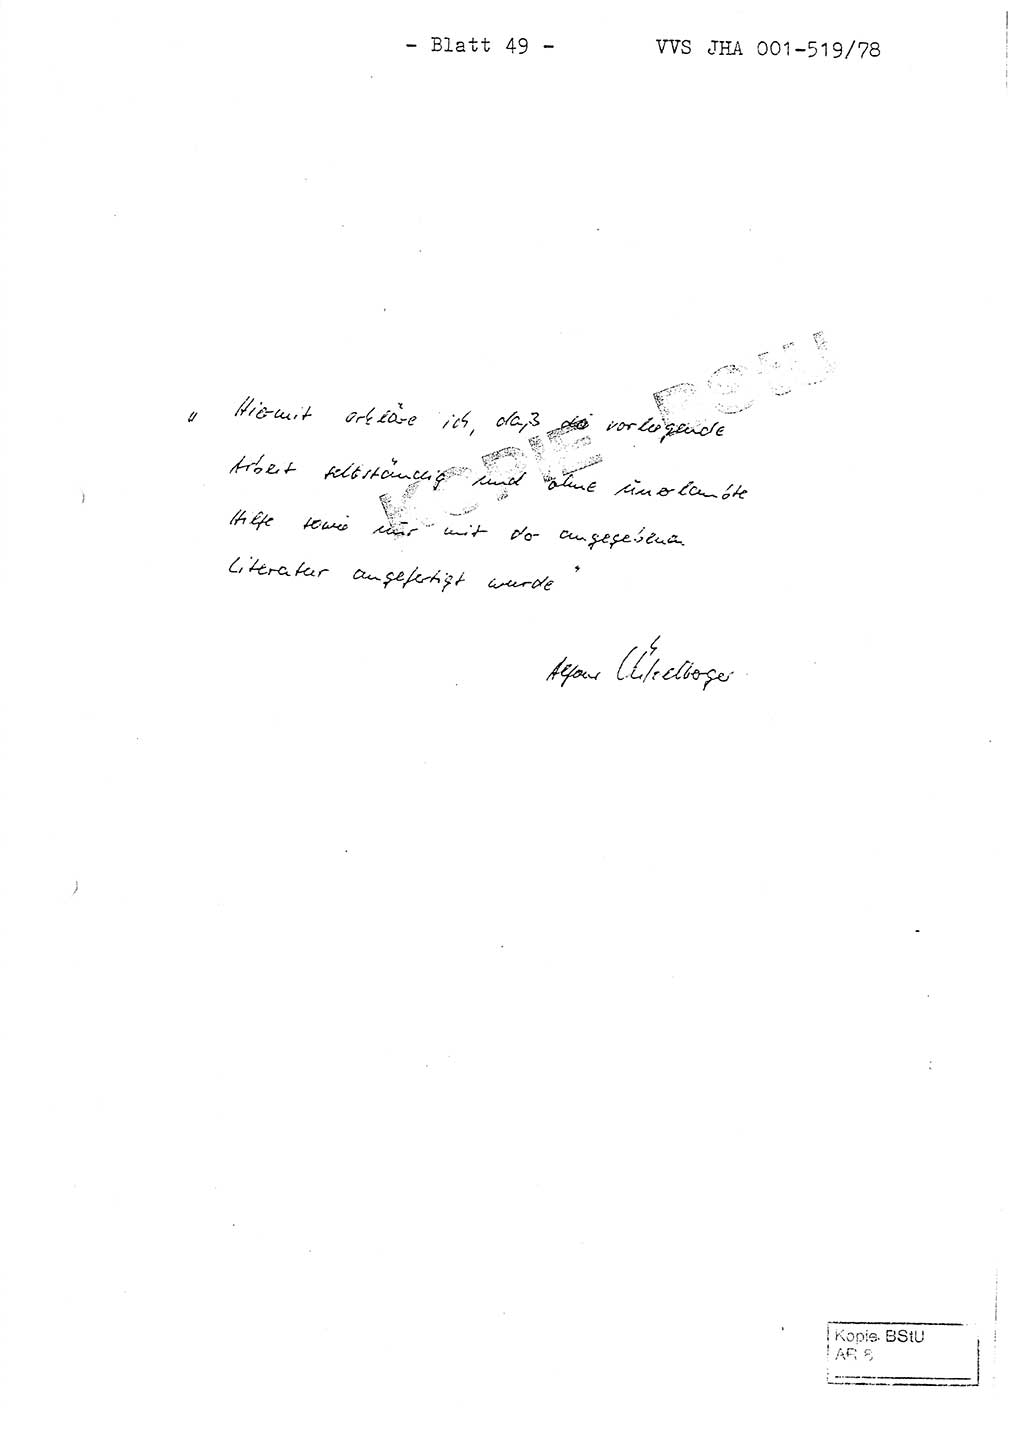 - Blatt 49 - VVS JHA 001-519/78
KOPIE BSTU
"Hiermit erkläre ich, daß die vorliegende
Arbeit selbständig und ohne unerlaubte
Hilfe sowie nur mit der angegebenen
Literatur angefertigt wurde"
Kopie BStU
AR 8